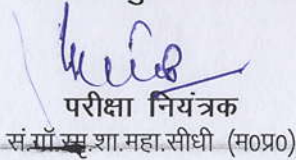 परीक्षा नियंत्रक
सं.गाँ.स्मृ.शा.महा.सीधी (म०प्र०)